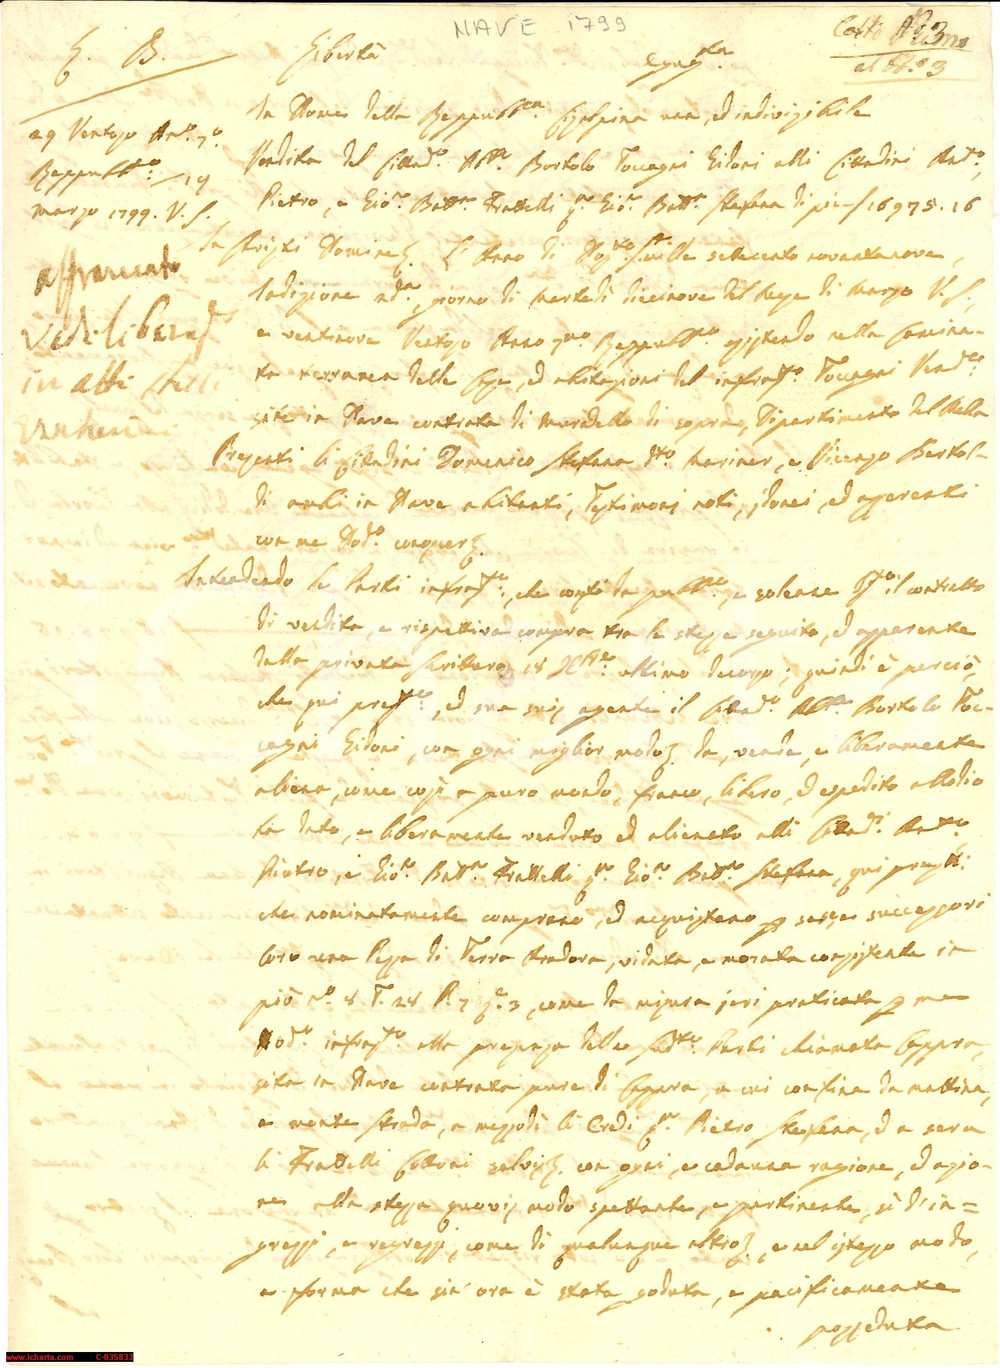 NAVE 1799
Carte N.o 3
al N.o 3
L. B. Libertà Eguag.za
29 Ventoso An.o 7.o
Reppubb.no 19
Marzo 1799. V. S.
affrancato
vedi liberad
in atti
In Nome della Reppubb.ca Cisalpina una, ed indivisibile
Vendita del Cittad.o Ab.te Bortolo Toccagni Lidoni alli Cittadini Ant.o,
Pietro, e Gio. Batt.a Frattelli q.m Gio. Batt.a Stefana di più f 16975.16
In Christi Nomine. L'Anno di Nos.o Sig. mille settecento novantanove,
Indizione 2da, giorno di Martedì diecinove del Mese di Marzo V. S.,
e ventinove Ventoso Anno 7mo Reppubb.no esistendo nella camina-
ta terranea delle Case, ed abitazioni del infras.to Toccagni Vend.e
site in Nave contrata di Muratello di sopra, Dipartimento del Mella
Presenti li Cittadini Domenico Stefana d.to Mariner, e Vicenzo Bertol-
di ambi in Nave abitanti, Testimonj noti, idonei, ed asserenti
con me Nod.o conoscer.
Intendendo le Parti infras.te, che consti da pubb.co, e solenne Ist.o il contratto
di vendita, e rispettiva compra tra le stesse seguito, ed apparente
dalla privata scrittura 18 Xbre ultimo decorso; quindi è perciò,
che qui pres.te, ed sua suis agente il Cittad.o Ab.te Bortolo Toc-
cagni Lidoni, con ogni miglior modo, da, vende, e liberamente
aliena, come così a puro mondo, franco, libero, ed espedito allodio
ha dato, e liberamente venduto ed alienato alli Cittad.i Ant.o
Pietro, e Gio. Batt.a Frattelli q.m Gio. Batt.a Stefana, qui pres.ti
che nominatamente comprano, ed acquistano p se, e successori
loro una Pezza di Terra Aradora, vidata, e morata consistente in
più n.o 8 T. 28 P. 7 q.e 3, come da misura jeri praticata p me
Nod.o infras.to alla presenza delle sud.te Parti chiamata Cappra,
sita in Nave contrata pure di Cappra, a cui confina da mattina,
e monte strada, a mezzodì li Eredi q.m Pietro Stefana, ed a sera
li Frattelli salvis, con ogni, e cadauna ragione, ed azio-
ne alla stessa quovis modo spettante, e pertinente, sì d'in=
gressi, e regressi, come di qualunque altro, e nel istesso modo,
e forma che sin'ora è stata goduta, e pacificamente
posseduta
www.icharta.com C-035833